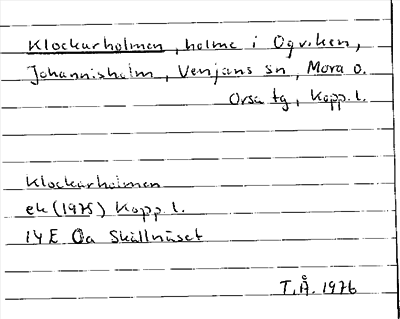 Klockarholmen, holme i Ogviken,
Johannisholm, Venjans sn, Mora o.
Orsa tg, Kopp. l.
Klockarholmen
ek (1975) Kopp l.
14E 0a Skållnäset
T.Å. 1976